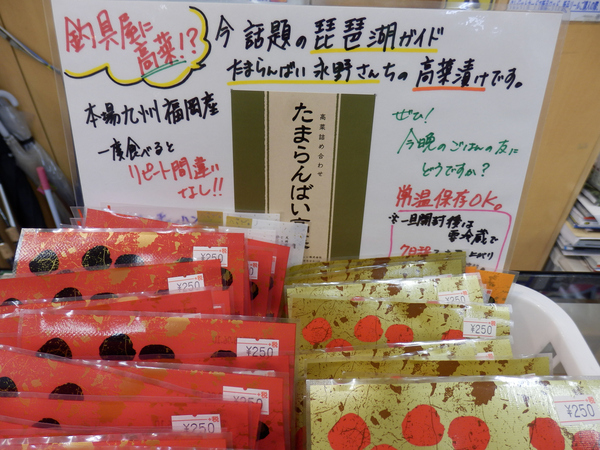 釣具屋に
高菜!?
今話題の琵琶湖ガイド
たまらんばい永野さんちの高菜漬けです。
本場九州福岡産
一度食べると
リピート間違い
なし!!
高菜詰め合わせ
たまらんばい
ぜひ!
今晩のごはんの友に
どうですか?
常温保存OK。
※一旦開封後は
要冷蔵で
¥250
¥250
¥250
¥250
¥250
¥250
¥250
¥250